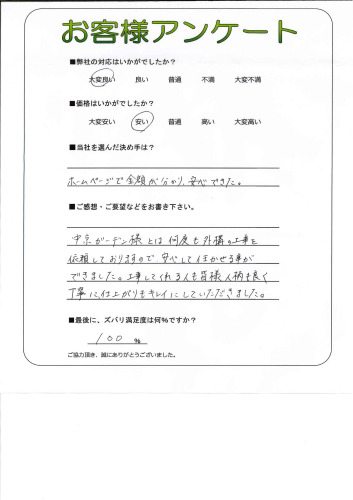 お客様アンケート
■弊社の対応はいかがでしたか？
大変良い 良い 普通 不満 大変不満
■価格はいかがでしたか？
大変安い 安い 普通 高い 大変高い
■当社を選んだ決め手は？
ホームページで金額が分かり、安心できた。
■ご感想・ご要望などをお書き下さい。
中京ガーデン様とは何度も外構の工事を
依頼しておりますので、安心して任かせる事が
できました。工事してくれる人も皆様人柄も良く
丁寧に仕上がりもキレイにしていただきました。
■最後に、ズバリ満足度は何％ですか？
100 ％
ご協力頂き、誠にありがとうございました。